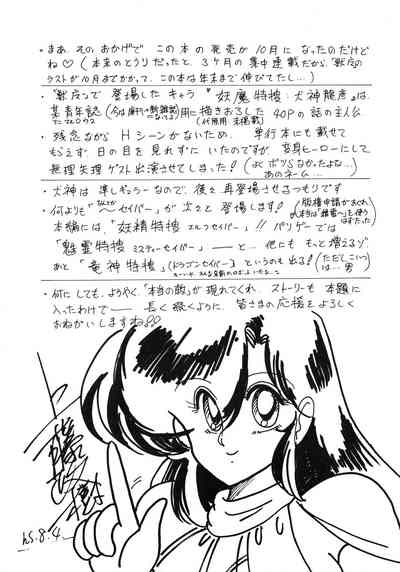 ・まあ、そのおかげで この本の発売が10月に なったのだけどね♡(本来のとうりだったと、3ヶ月の集中連載だから
ラストが10月までかかって、この本は年末まで伸びてした…)
・で登場したキャラ "妖魔特捜・犬神龍彦"は、
某青年誌用に描きおろした 40Pの話の主人公
・残念ながら Hシーンがないため、単行本にも載せて
もらえず、日の目を見れずにいたのですが、変身ヒーローにして
無理矢理ゲスト出演させてしまった!(よくボツらなかったよな…
あのネーム…)
・犬神は準レギュラーなので、後々再登場させるつもりです
・何よりも"〜セイバー"が次々と登場します!
本編には、"妖精特捜 エルフセイバー"!! バリゲーでは
「魅霊特捜 ミスティーセイバー」ーと… 他にも もっと増えるゾ。
あと「竜神特捜」(ドラゴンセイバー)というのも出る!(ただしこいつは…男)
・何にしても、ようやく「本当の敵」が現れてくれ、ストーリーも 本題に
入ったわけで— 長く続くように、皆さまの応援をよろしく
おねがいしますね♡♡
'95.8.4